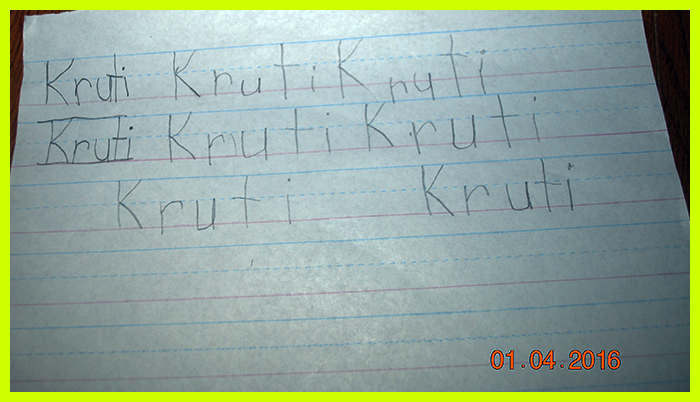 Kruti Kruti Kruti
Kruti Kruti Kruti
Kruti Kruti
01.04.2016